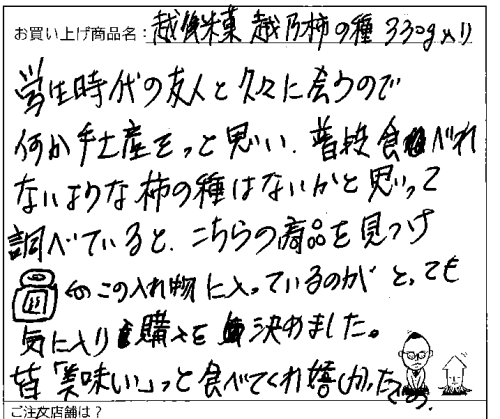 お買い上げ商品名：越後米菓 越乃柿の種 330g入り
学生時代の友人と久々に会うので
何か手土産をっと思い、普段食べれ
ないような柿の種はないかと思って
調べていると、こちらの商品を見つけ
⇦この入れ物に入っているのがとっても
気に入り購入を決めました。
皆「美味しい」っと食べてくれ嬉しかったです。
ご注文店舗は？